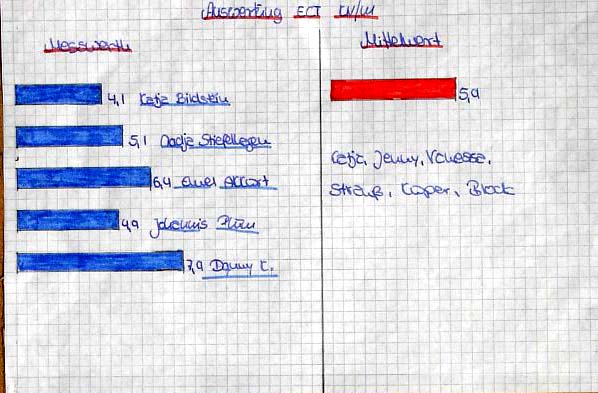 Auswertung ECT kV/m
Messwerte
4,1 Katja Bildstein
5,1 Nadja Stiefelhagen
6,4
4,9 Johannis
7,9 Danny C.
Mittelwert
5,9
Katja, Jenny, Vanessa,
Strauß, Kaper, Block